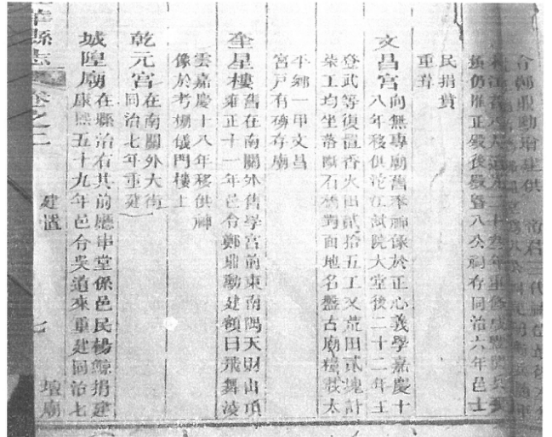 同治六年邑士
民捐貲
重葺
文昌宮向無專廟舊奉像於正心義學嘉慶十
八年移供沱江試院大堂後二十二年王
登武等復置香火田貳拾五工又荒田貳塊計
柒工均坐落石對面地名盤古廟糧載太
平鄉一甲文昌
宮戶有磚存廟
奎星樓舊在南關外舊學宮前東南隅天財山頂
雍正十一年邑令鄭鼎勳建額曰飛舞凌
雲嘉慶十八年移供神
像於考棚儀門樓上
乾元宮在南關外大街
同治七年重建
城隍廟在縣治右其前廳串堂係邑民楊鯨捐建
康熙五十九年邑令吳道來重建同治七
華縣志 卷之二 建置 七 壇廟